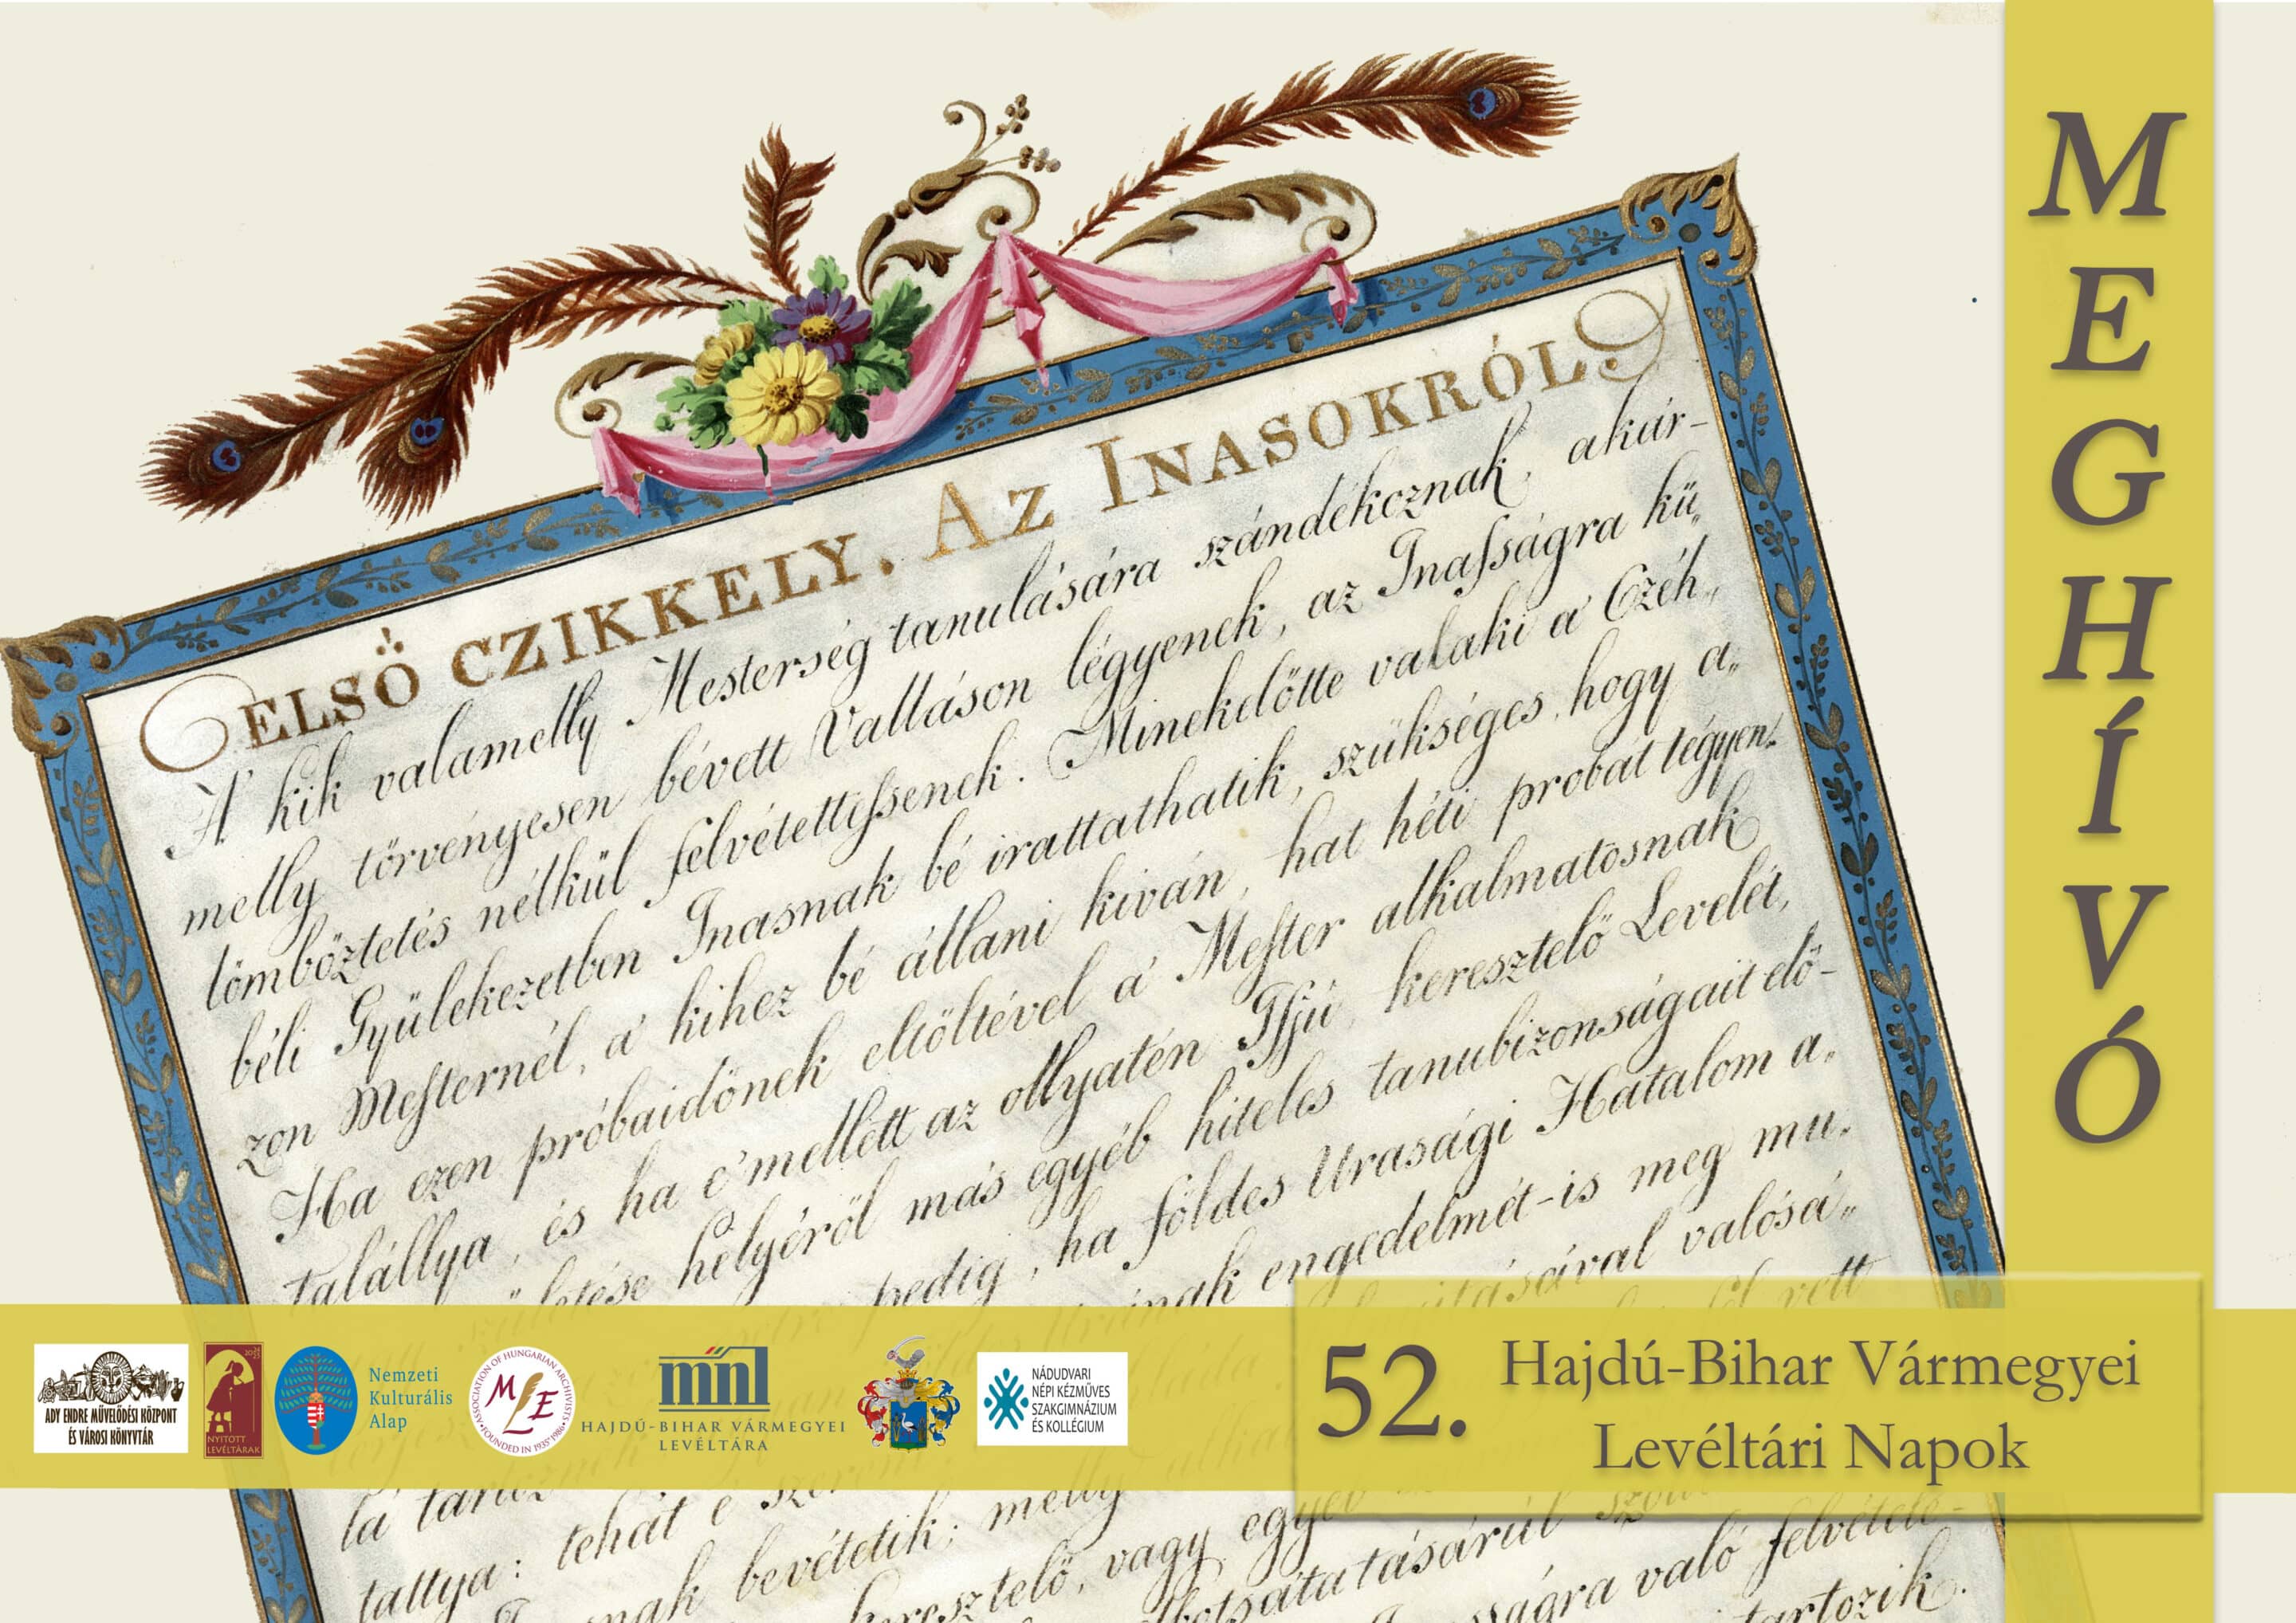 ELSŐ CZIKKELY. AZ INASOKRÓL.
A' kik valamelly Mesterség tanulására szándékoznak, akár-
melly törvényesen bévett Valláson légyenek, az Inasságra kü„
lömböztetés nélkül felvétettessenek. Minekelőtte valaki a' Czéh„
béli Gyülekezetben Inasnak bé irattathatik, szükséges, hogy a„
zon Mesternél, a' kihez bé állani kiván, hat héti probát légyen.
Ha ezen próbaidőnek eltöltével a' Mester alkalmatosnak
talállya, és ha e' mellett az ollyatén Ifjú, keresztelő Levelét,
helyéről más egyéb hiteles tanubizonságait elő-
pedig, ha földes Urasági Hatalom a„
engedelmét-is meg mu„
valósá„
vett
tallya: tehát e'
bevétetik; melly
keresztelő, vagy egyéb
való felvétele-
tartozik.
MEGHÍVÓ
52. Hajdú-Bihar Vármegyei
Levéltári Napok
ADY ENDRE MŰVELŐDÉSI KÖZPONT
ÉS VÁROSI KÖNYVTÁR
NYITOTT
LEVÉLTÁRAK
Nemzeti
Kulturális
Alap
ASSOCIATION OF HUNGARIAN ARCHIVISTS
MLE
FOUNDED IN 1935 1986
mnl
HAJDÚ-BIHAR VÁRMEGYEI
LEVÉLTÁRA
NÁDUDVARI
NÉPI KÉZMŰVES
SZAKGIMNÁZIUM
ÉS KOLLÉGIUM